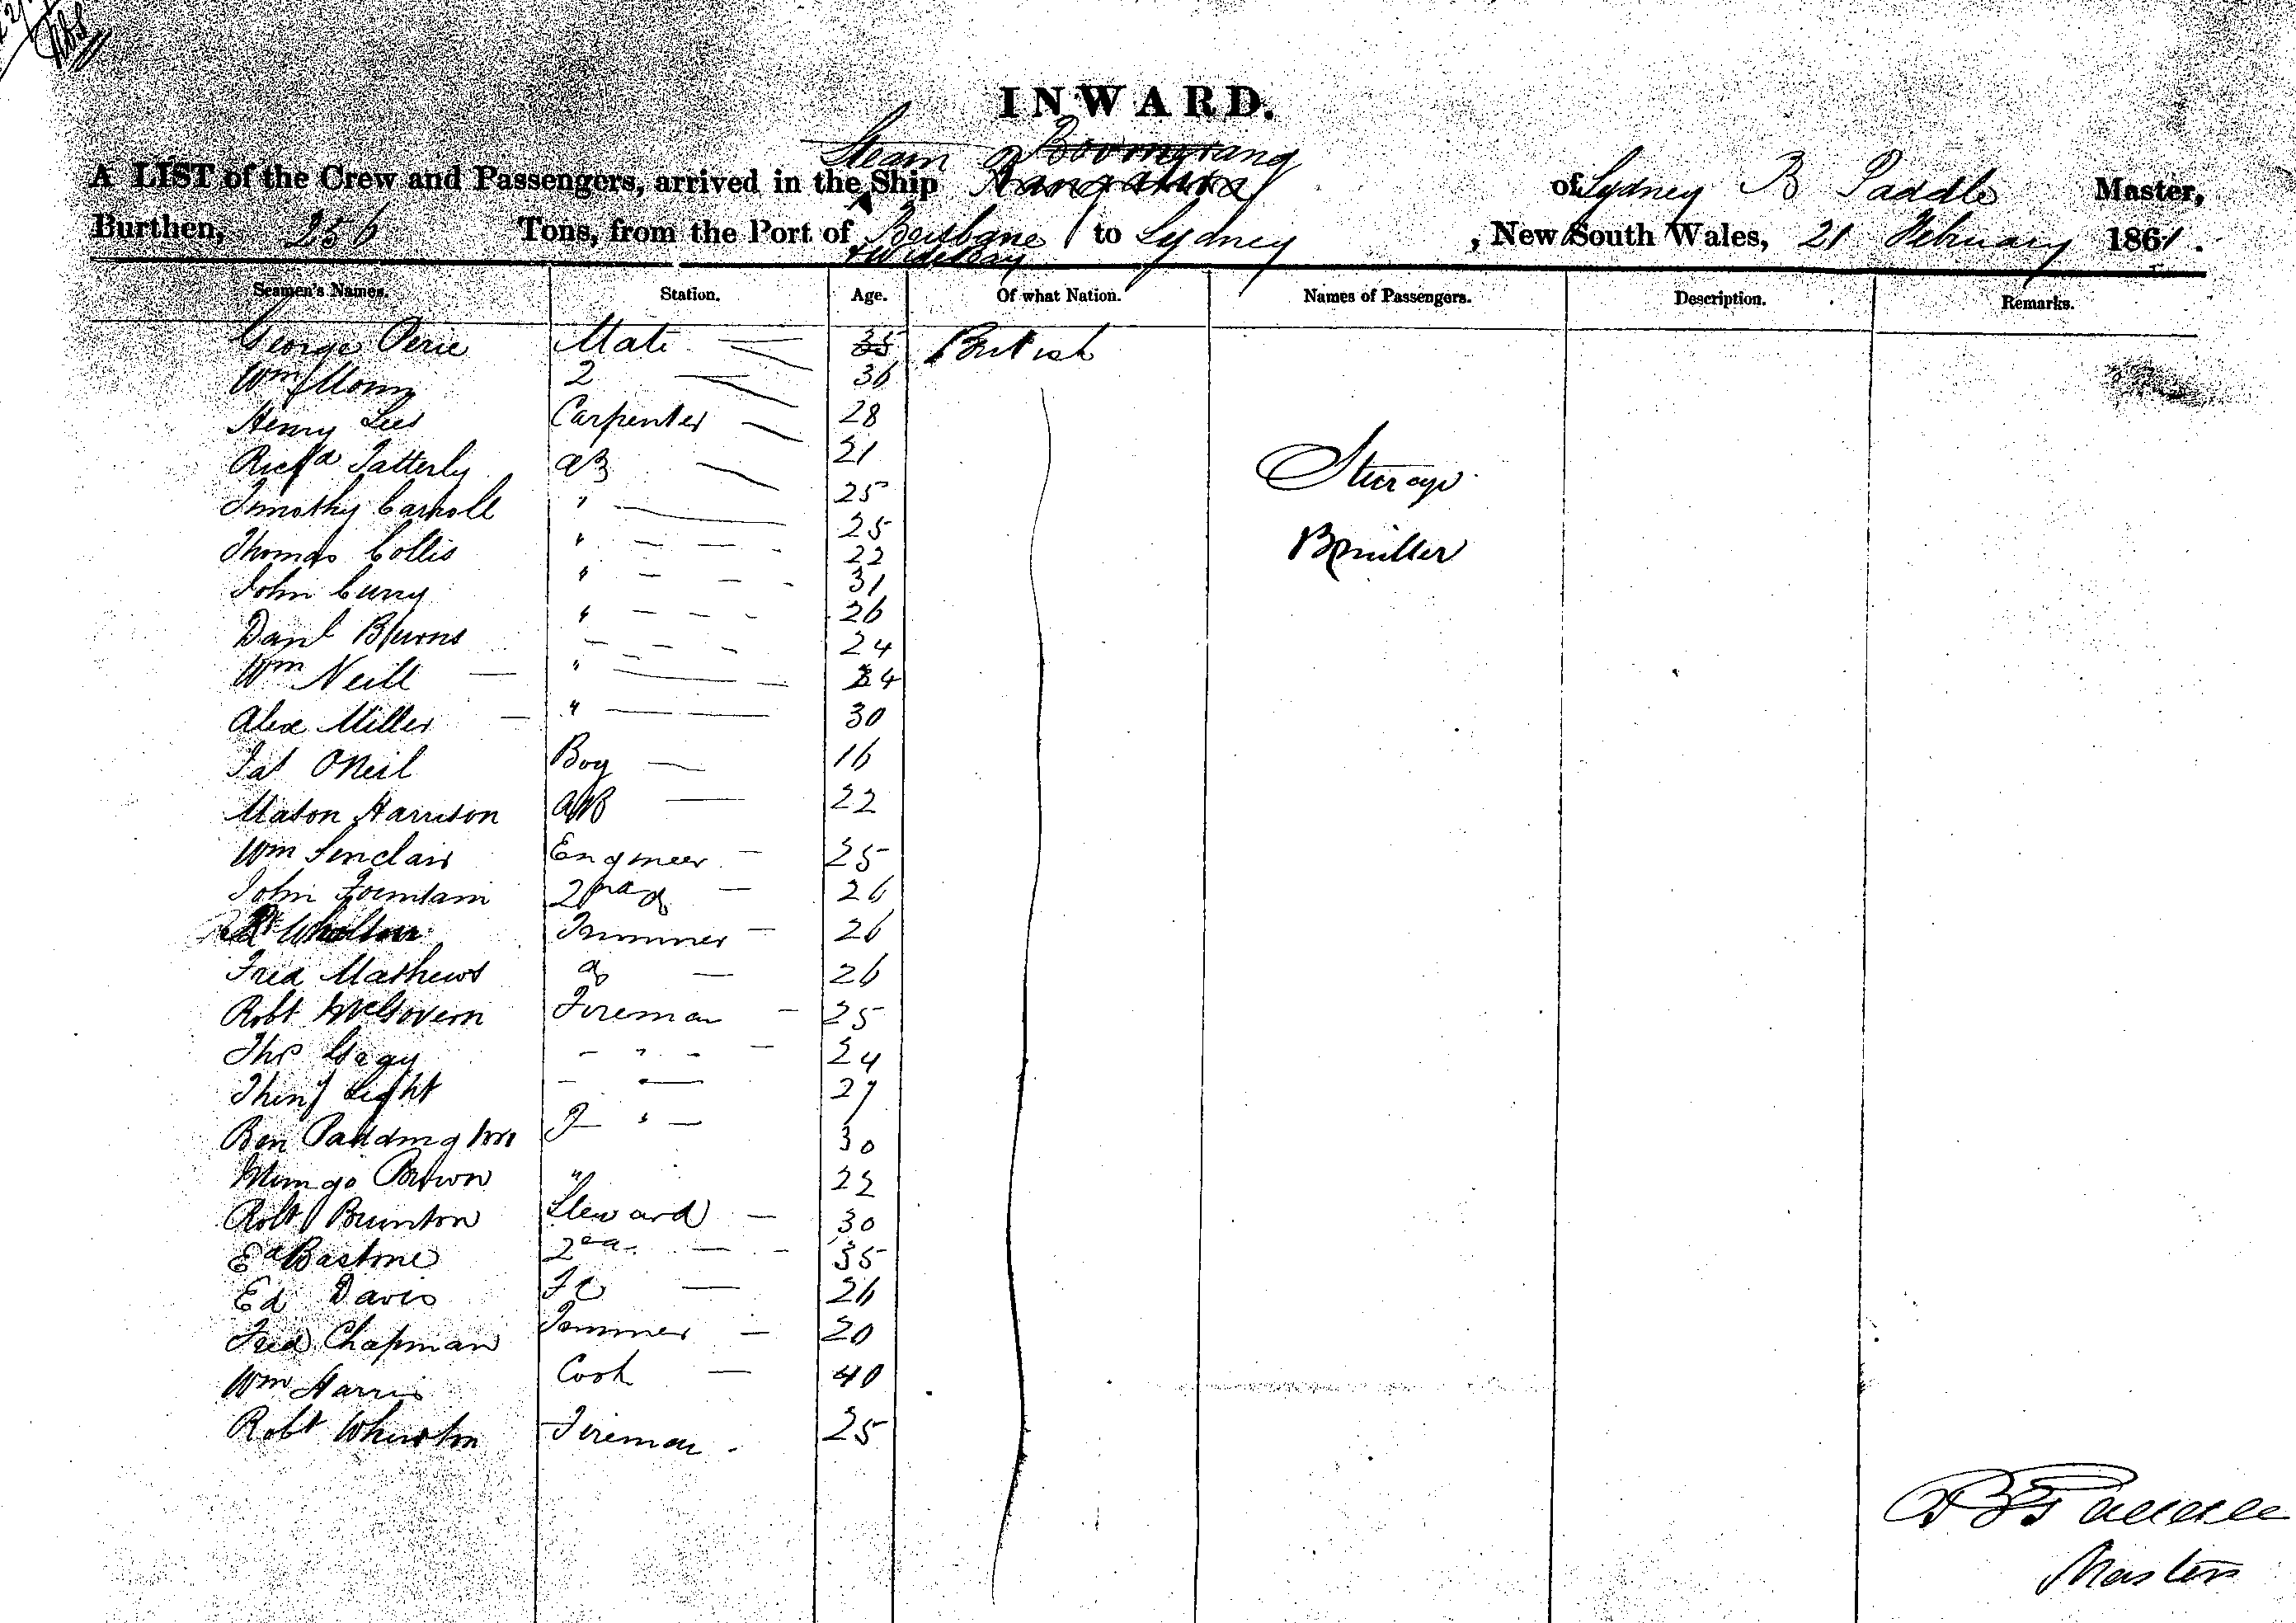 INWARD.
Steam Boomerang
A LIST of the Crew and Passengers, arrived in the Ship of Sydney B Paddle Master,
Burthen, 256 Tons, from the Port of Brisbane to Sydney , New South Wales, 21 February 1861.
Seamen's Names. Station. Age. Of what Nation. Names of Passengers. Description. Remarks.
George Perie Mate 35 British
Wm 2 36
Henry Lees Carpenter 28
Richd Tatterly AB 21 Steerage
Timothy Carroll " 25
Thomas Collis " 25 B Miller
John Curry " 22
Danl Burns " 31
Wm Neill " 26
Alex Miller " 24
34
30
Pat ONeil Boy 16
Mason Harrison AB 22
Wm Sinclair Engineer 25
John Fountain 2nd do 26
Trimmer 26
Fred Mathews do 26
Robt McGovern Fireman 25
Thos " 24
Light 27
Ben Paddington " 30
Mungo Brown " 22
Robt Brunton Steward 30
Ed Bastone 2nd 35
Ed Davis 26
Fred Chapman Trimmer 20
Wm Harris Cook 40
Robt Fireman 25
B Paddle
Master